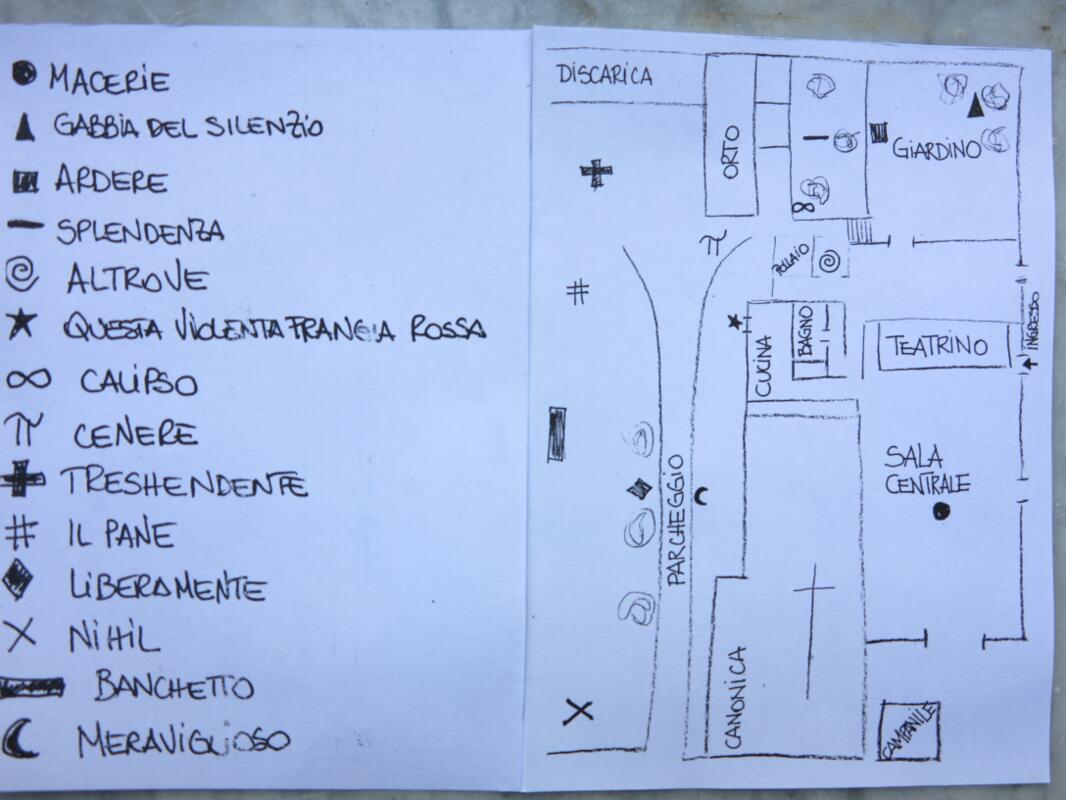 MACERIE
GABBIA DEL SILENZIO
ARDERE
SPLENDENZA
ALTROVE
QUESTA VIOLENTA FRANGIA ROSSA
CALIPSO
CENERE
TRESHENDENTE
IL PANE
LIBERAMENTE
NIHIL
BANCHETTO
MERAVIGLIOSO
DISCARICA
ORTO
GIARDINO
POLLAIO
CUCINA
BAGNO
TEATRINO
INGRESSO
SALA
CENTRALE
PARCHEGGIO
CANONICA
CAMPANILE